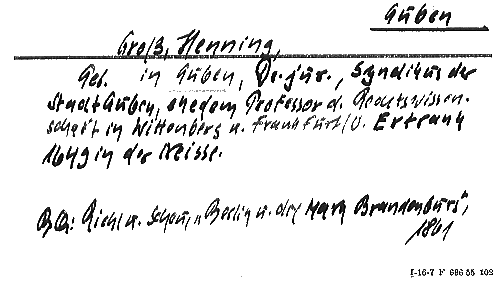 Guben
Groß, Henning,
Geb. in Guben, Dr. jur., Syndikus der
Stadt Guben, ehedem Professor d. Rechtswissen-
schaft in Wittenberg u. Frankfurt/O. Ertrank
1649 in der Neisse.
Riehl u. Scheu, "Berlin u. die Mark Brandenburg",
1861
I-16-7 F 686 55 102